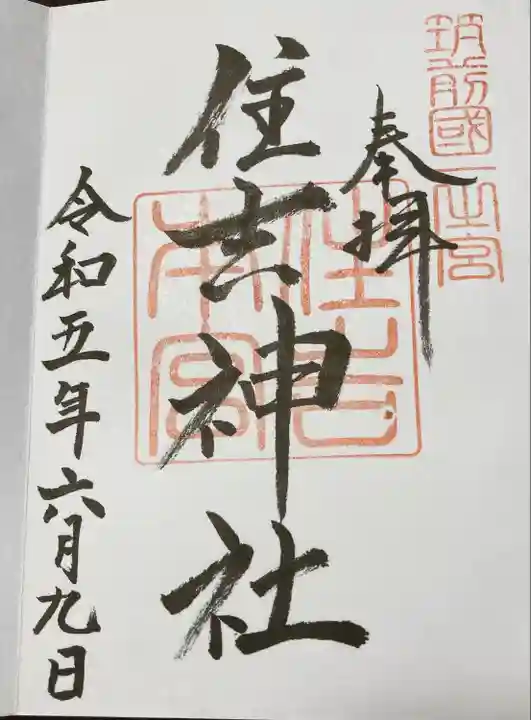 筑前國一之宮
奉拝
住吉神社
住吉
本宮
令和五年六月九日